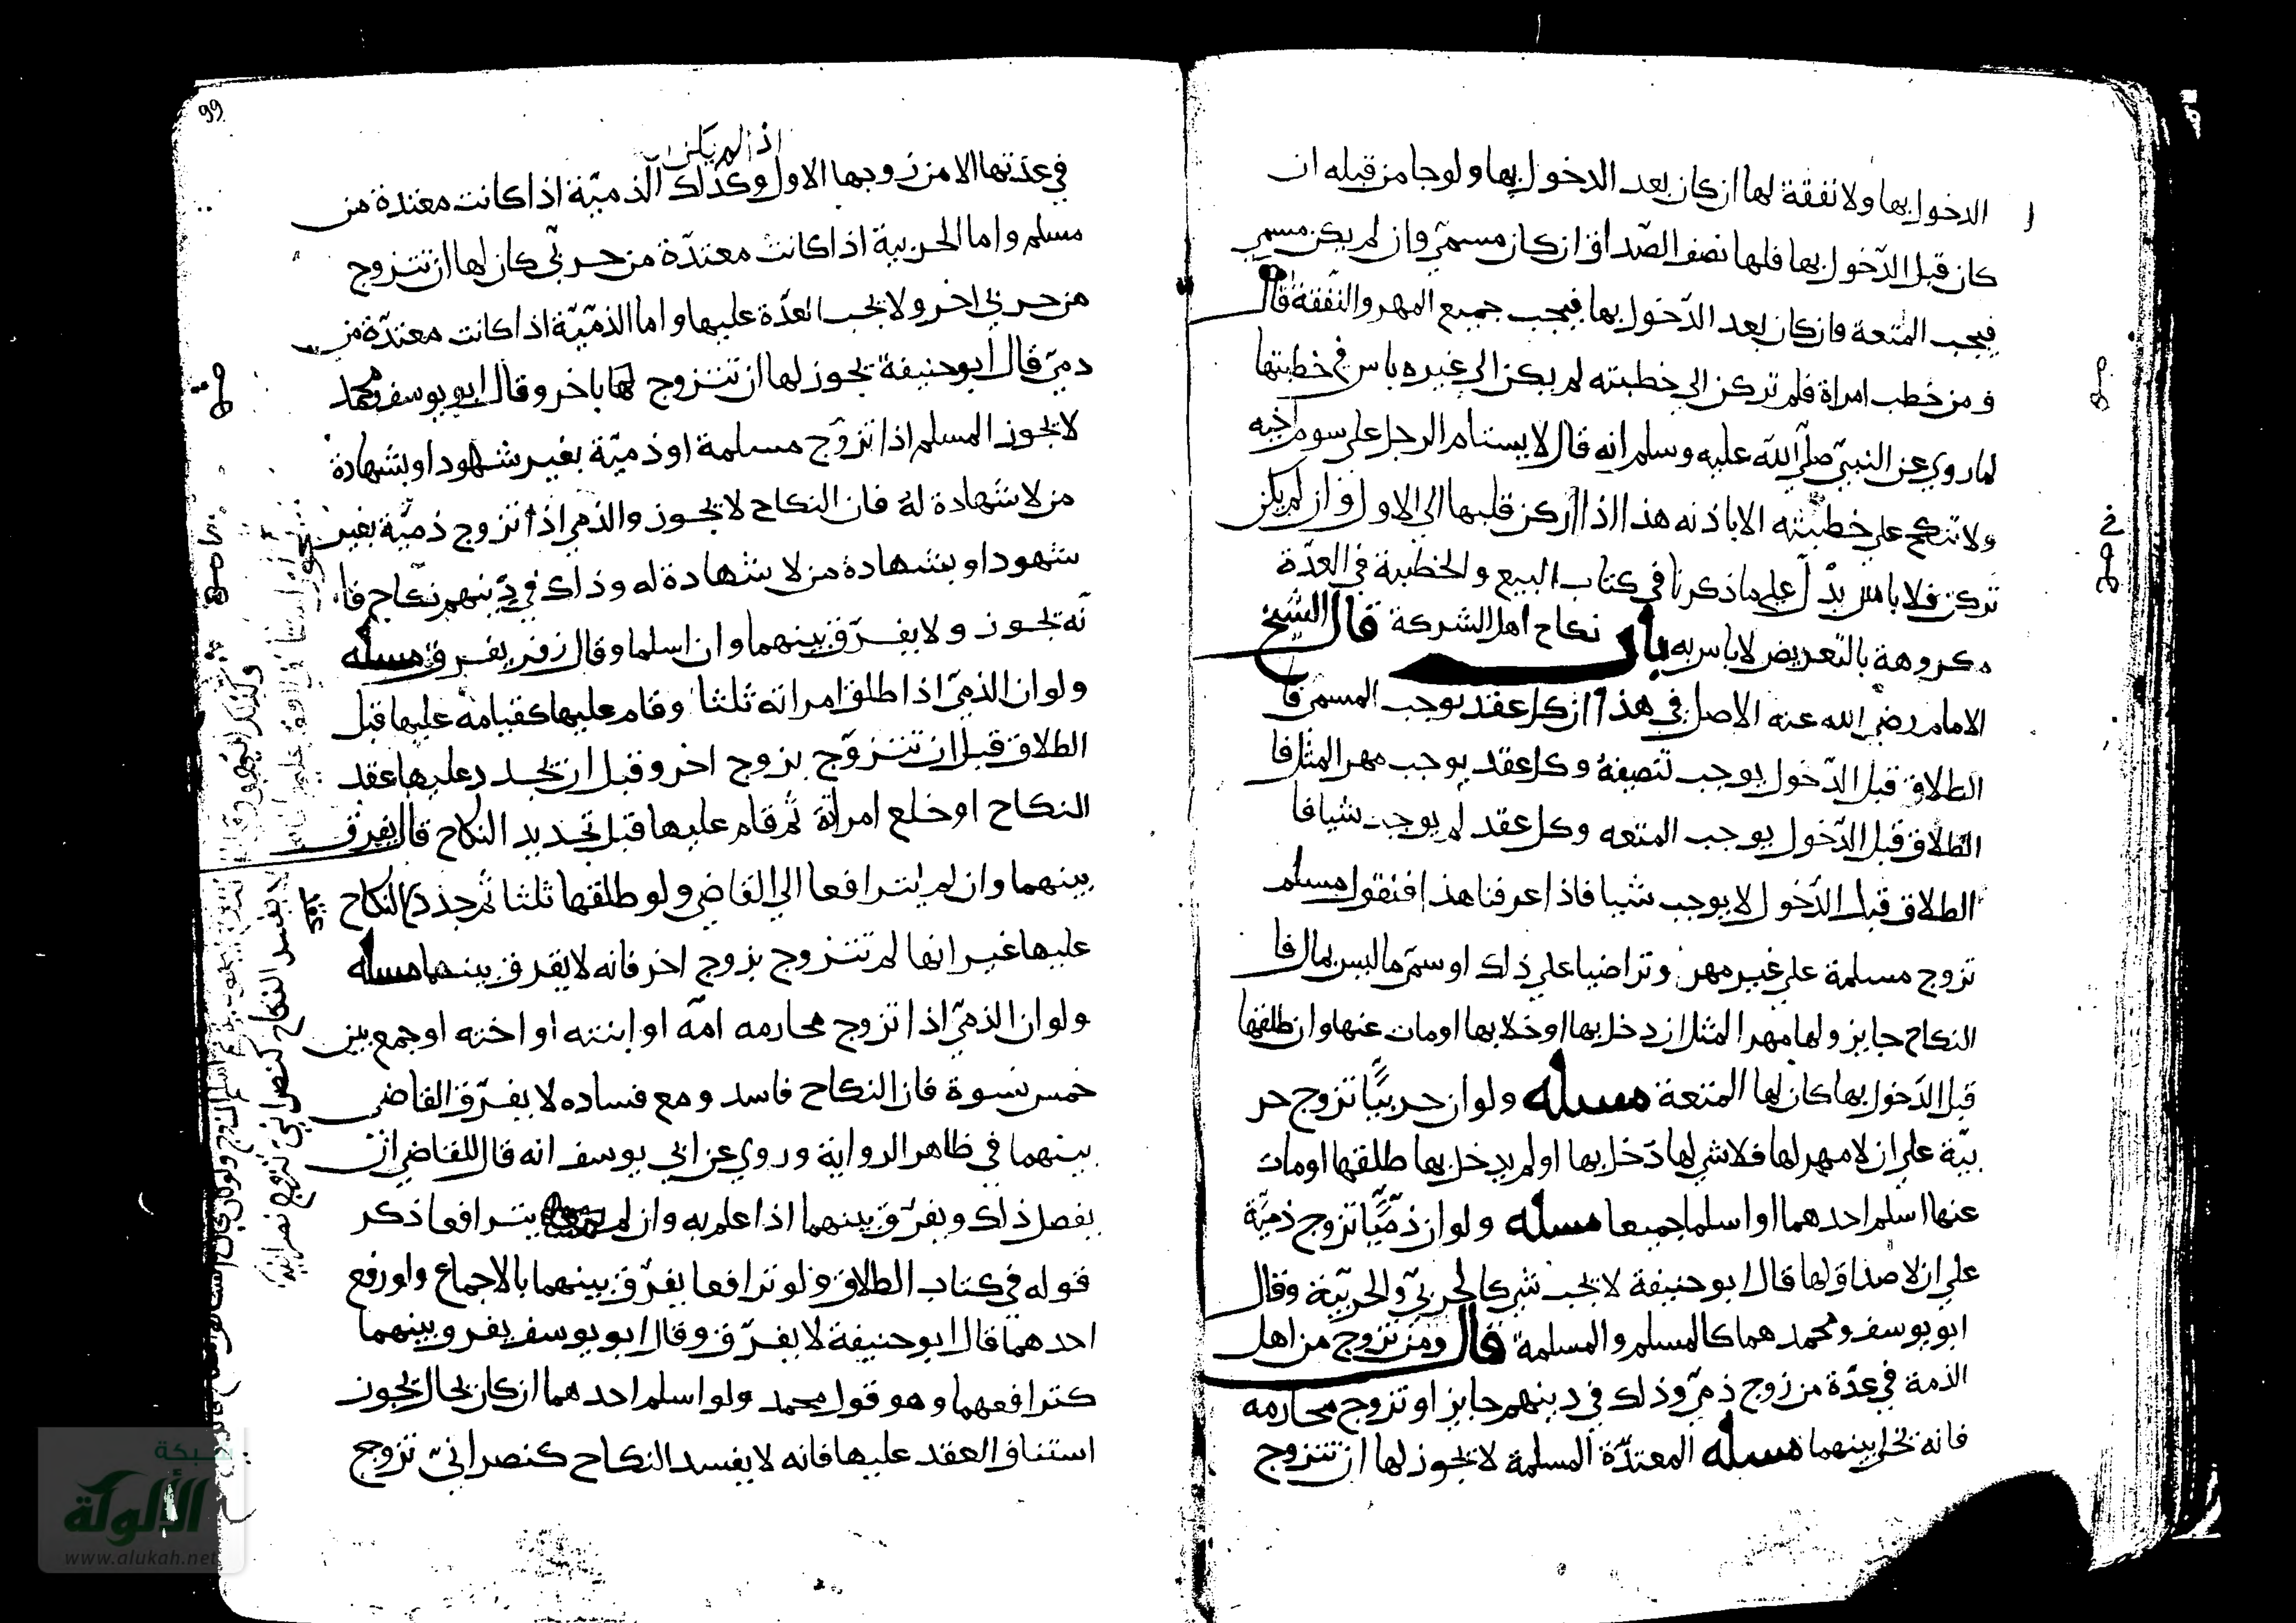 الدخول بها ولا نفقة لها ان كان بعد الدخول بها ولو جا من قبله ان
كان قبل الدّخول بها فلها نصف الصّداق ان كان مسمّي وان لم يكن مسمي
فيجب المتعة وان كان بعد الدّخول بها فيجب جميع المهر والنّفقة قال
ومن خطب امراة فلم تركن الي خطبته لم يكن الي غيره باس في خطبتها
لما روي عن النبيّ صلّي اللّه عليه وسلم انه قال لا يستام الرجل علي سوم اخيه
ولا تنكح علي خطبته الا باذنه هذا اذا اركن قلبها الي الاول وان لم يكن
تركن فلا باس يدّل علي ما ذكرنا في كتاب البيع والخطبة في العدّة
مكروهة بالتعريض لا باس به باب نكاح اهل الشركة قال الشيخ
الامام رضي الله عنه الاصل في هذا ان كل عقد يوجب المسمي فا
الطلاق قبل الدّخول يوجب تنصيفه وكل عقد يوجب مهر المثل فا
الطلاق قبل الدّخول يوجب المتعه وكل عقد لم يوجب شيا فا
الطلاق قبل الدّخول لا يوجب شيا فاذا عرفنا هذا فنقول مسلم
تزوج مسلمة علي غير مهر وتراضيا علي ذلك او سمّي ما ليس بمال فا
النكاح جايز ولها مهر المثل ان دخل بها او خلا بها او مات عنها وان طلقها
قبل الدّخول بها كان لها المتعة مسله ولو ان حربيًّا تزوج حر
بيّة علي ان لا مهر لها فلا شي لها دخل بها او لم يدخل بها طلقها او مات
عنها اسلم احدهما او اسلما جميعا مسله ولو ان ذميًّا تزوج ذميّة
علي ان لا صداق لها قال ابو حنيفة لا يجب شي كالحربيّ والحربيّة وقال
ابو يوسف ومحمد هما كالمسلم والمسلمة قال ومن تزوج من اهل
الذمة في عدّة من زوج ذميّ وذلك في دينهم جايز او تزوج محارمه
فانه يخلي بينهما مسله المعتدّة المسلمة لا يجوز لها ان تتزوج
99
اذا لم يكن
في عدّتها الا من زوجها الاول وكذلك الذميّة اذا كانت معتدة من
مسلم واما الحربية اذا كانت معتدّة من حربيّ كان لها ان تتزوج
من حربي اخر ولا يجب العدّة عليها واما الذمّيّة اذا كانت معتدّة من
دميّ قال ابو حنيفة يجوز لها ان تتزوج لها باخر وقال ابو يوسف ومحمد
لا يجوز المسلم اذا تزوّج مسلمة او ذميّة بغير شهود او بشهادة
من لا شهادة له فان النكاح لا يجوز والذمي اذا تزوج ذميّة بغير
شهود او بشهادة من لا شهادة له وذلك في دينهم نكاح فا
نّه يجوز ولا يفرّق بينهما وان اسلما وقال زفر يفرق مسله
ولو ان الذميّ اذا طلق امراته ثلثا وقام عليها كقيامه عليها قبل
الطلاق قبل ان تتزوّج بزوج اخر وقبل ان يجدد عليها عقد
النكاح او خلع امراة ثم قام عليها قبل تجديد النكاح قال يفرق
بينهما وان لم يترافعا الي القاضي ولو طلقها ثلثا ثم جدد النكاح
عليها غير انها لم تتزوج بزوج اخر فانه لا يفرق بينهما مسله
ولو ان الذميّ اذا تزوج محارمه امّه او ابنته او اخته او جمع بين
خمس نسوة فان النكاح فاسد ومع فساده لا يفرّق القاضي
بينهما في ظاهر الرواية وروي عن ابي يوسف انه قال للقاضي ان
يفصل ذلك ويفرّق بينهما اذا علم به وان لم يترافعا ذكر
قوله في كتاب الطلاق ولو ترافعا يفرّق بينهما بالاجماع ولو رفع
احدهما قال ابو حنيفة لا يفرّق وقال ابو يوسف يفرق بينهما
كترافعهما وهو قول محمد ولو اسلم احدهما ان كان بحال يجوز
استئناف العقد عليها فانه لا يفسد النكاح كنصرانيّ تزوج
لا يفسد النكاح كنصراني تزوج نصرانية
شبكة
الألوكة
www.alukah.net